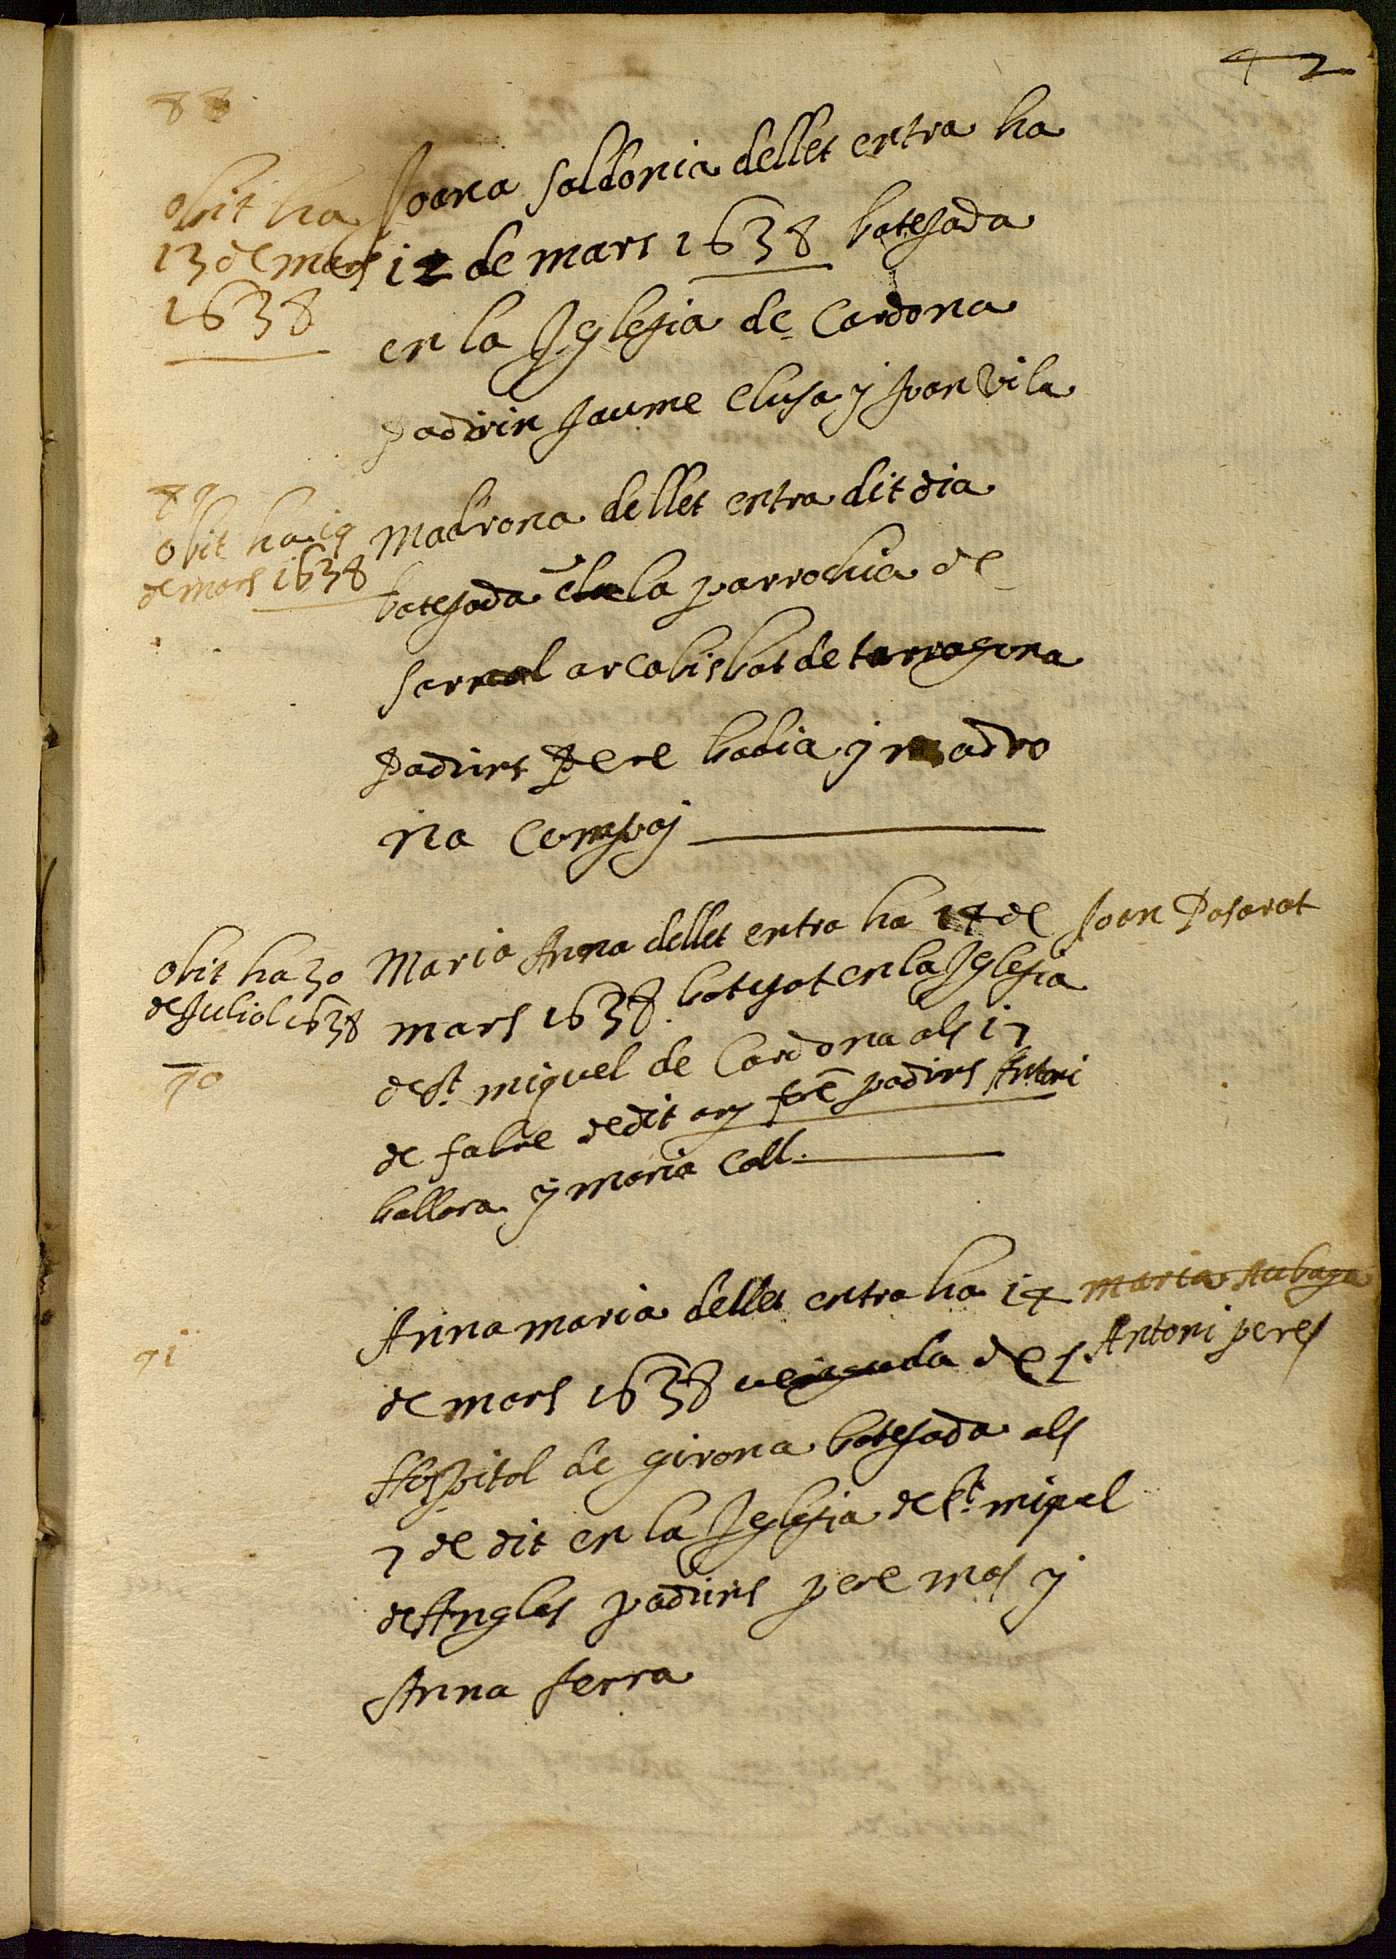 42
88
obit ha
13 de mars
1638
Joana saldonia dellet entra ha
12 de mars 1638 batejada
en la Iglesia de Cardona
padrin Jaume Clusa y Joan Vila
89
obit ha 19
de mars 1638
Madrona dellet entra dit dia
batejada en la parrochia de
Sarral arcabisbat de tarragona
padrins Pere badia y madro
na Compaj
obit ha 30
de Juliol 1638
90
Maria Anna dellet entra ha 14 de
mars 1638 batejat en la Iglesia
de St. miquel de Cardona als 17
de fabre de dit any padrins Antoni
ballara y maria Coll.
Joan Pasarat
91
Anna maria dellet entra ha 14
de mars 1638 venguda de l
Hospital de girona batejada als
7 de dit en la Iglesia de St. miquel
de Angles padrins pere mas y
Anna serra
maria
Antoni peres